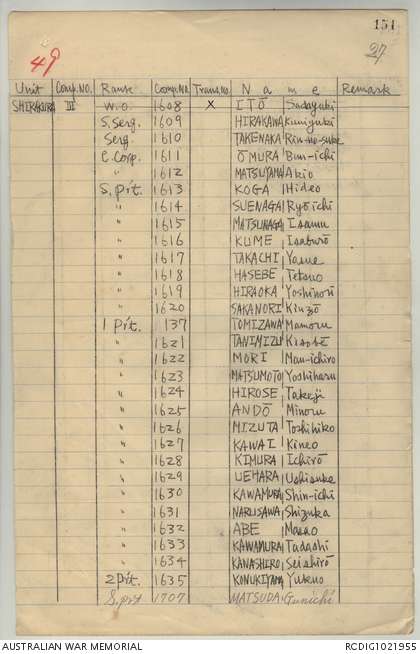 151
49
27
Unit Comp.NO. Ranse Comp.No Trans.no. Name Remark
SHIRAKURA III W.O. 1608 x ITŌ Sadayuki
S, Serg. 1609 HIRAKAWA Kuniyuki
Serg. 1610 TAKENAKA Rin-no-suke
C. Corp. 1611 ŌMURA Bun-ichi
" 1612 MATSUYAMA Akio
S. Prt. 1613 KOGA Hideo
" 1614 SUENAGA Ryōichi
" 1615 MATSUNAGA Isamu
" 1616 KUME Isaburō
" 1617 TAKACHI Yasue
" 1618 HASEBE Tetsuo
" 1619 HIRAOKA Yoshinori
" 1620 SAKANORI Kinzō
1 Prt. 137 TOMIZAWA Mamoru
" 1621 TANIMIZU
" 1622 MORI Man-ichiro
" 1623 MATSUMOTO Yoshiharu
" 1624 HIROSE Takeji
" 1625 ANDŌ Minoru
" 1626 MIZUTA Toshihiko
" 1627 KAWAI Kineo
" 1628 KIMURA Ichirō
" 1629 UEHARA Ushisuke
" 1630 KAWAMURA Shin-ichi
" 1631 NARUSAWA Shizuka
" 1632 ABE Masao
" 1633 KAWAMURA Tadashi
" 1634 KANASHIRO Seishirō
2 Prt. 1635 KONUKIYAMA Yukuo
S. prt 1707 MATSUDA Gunichi
AUSTRALIAN WAR MEMORIAL RCDIG1021955